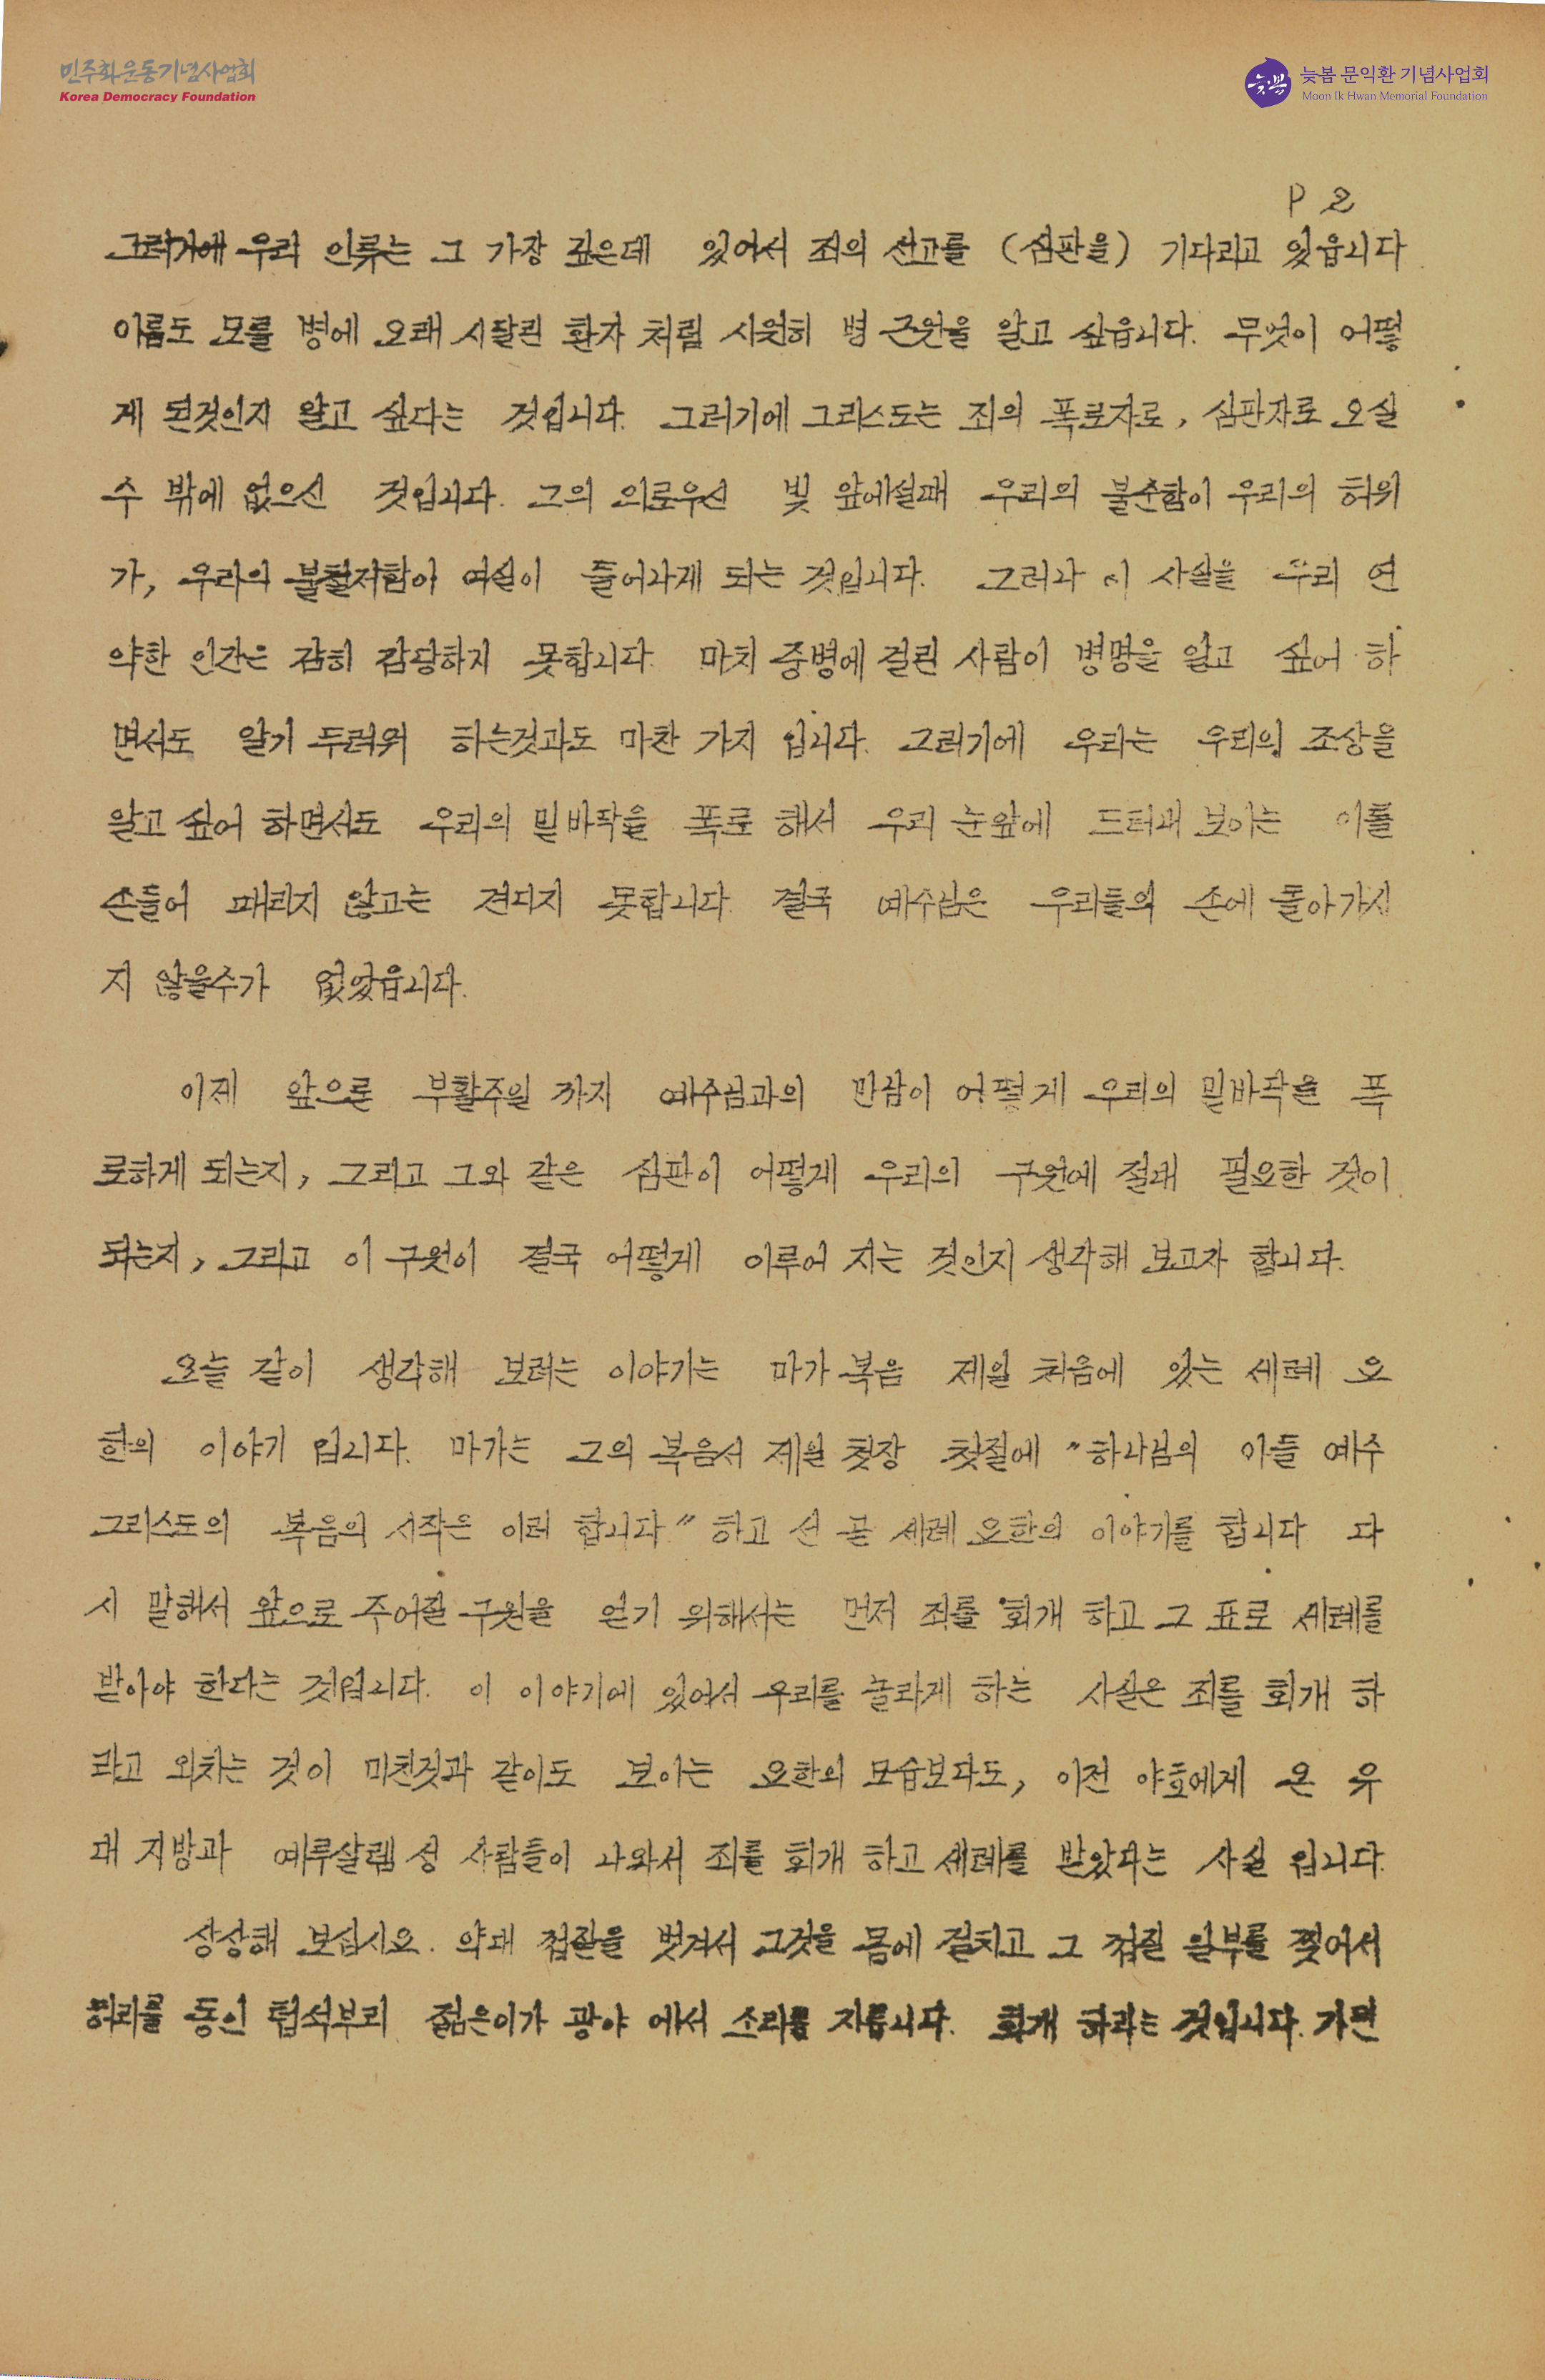 민주화운동기념사업회
Korea Democracy Foundation
늦봄 문익환 기념사업회
Moon Ik Hwan Memorial Foundation
P 2
그러기에 우리 인류는 그 가장 깊은데 있어서 죄의 선고를 (심판을) 기다리고 있읍니다
이름도 모를 병에 오래 시달린 환자 처럼 시원히 병 근원을 알고 싶읍니다. 무엇이 어떻
게 된것인지 알고 싶다는 것입니다. 그러기에 그리스도는 죄의 폭로자로, 심판자로 오실
수 밖에 없으신 것입니다. 그의 의로우신 빛 앞에설때 우리의 불순함이 우리의 허위
가, 우리의 불철저함이 여실이 들어나게 되는 것입니다. 그러나 이 사실을 우리 연
약한 인간은 감히 감당하지 못합니다. 마치 중병에 걸린 사람이 병명을 알고 싶어 하
면서도 알기 두려워 하는것과도 마찬 가지 입니다. 그러기에 우리는 우리의 조상을
알고 싶어 하면서도 우리의 밑바닥을 폭로 해서 우리 눈앞에 드러내 보이는 이를
손들어 때리지 않고는 견디지 못합니다. 결국 예수님은 우리들의 손에 돌아가시
지 않을수가 없었읍니다.
이제 앞으론 부활주일 까지 예수님과의 만남이 어떻게 우리의 밑바닥을 폭
로하게 되는지, 그리고 그와 같은 심판이 어떻게 우리의 구원에 절대 필요한 것이
되는지, 그리고 이 구원이 결국 어떻게 이루어 지는 것인지 생각해 보고자 합니다.
오늘 같이 생각해 보려는 이야기는 마가 복음 제일 처음에 있는 세례 요
한의 이야기 입니다. 마가는 그의 복음서 제일 첫장 첫절에 "하나님의 아들 예수
그리스도의 복음의 시작은 이러 합니다" 하고 선 곧 세례 요한의 이야기를 합니다 다
시 말해서 앞으로 주어질 구원을 얻기 위해서는 먼저 죄를 회개 하고 그 표로 세례를
받아야 한다는 것입니다. 이 이야기에 있어서 우리를 놀라게 하는 사실은 죄를 회개 하
라고 외치는 것이 미친것과 같이도 보이는 요한의 모습보다도, 이전 야호에게 온 유
대 지방과 예루살렘 성 사람들이 나와서 죄를 회개 하고 세례를 받았다는 사실 입니다.
상상해 보십시오. 약대 껍질을 벗겨서 그것을 몸에 걸치고 그 껍질 일부를 찢어서
허리를 동인 텁석부리 젊은이가 광야 에서 소리를 지릅니다. 회개 하라는 것입니다. 가만